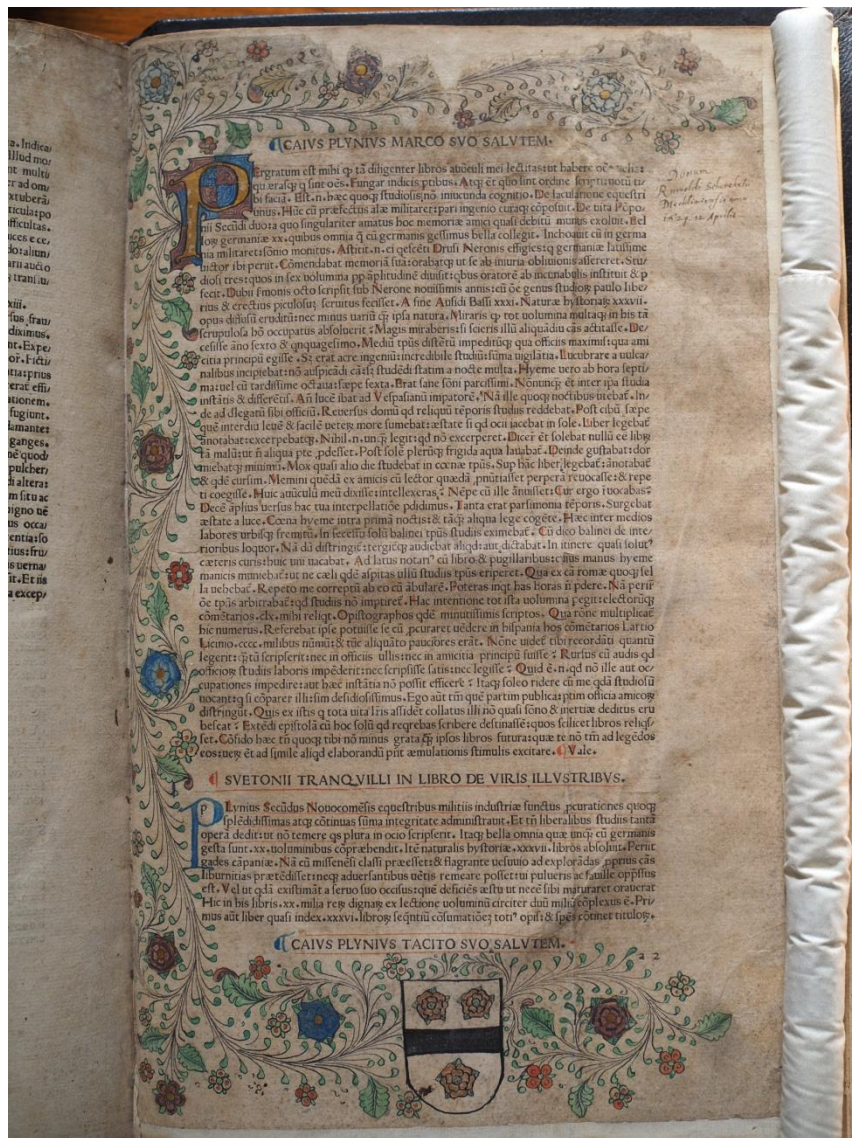 a. Indica/
Illud mo/
nt multi
r ad om/
xtuberā/
ticula:po
fficultas.
ucces e ce/
do:aliun/
arii aucto
xiii.
fus frau/
diximus.
ut. Expe/
or. Ficti/
tia:prius
erat effi/
ationem.
fugiunt.
lamante:
ganges.
nē quod/
pulcher/
di altera:
m situ ac
igno uē
us occa/
entia:so
tius:fru/
is uerna/
ūt. Et iis
a excep/
CAIVS PLYNIVS MARCO SVO SALVTEM.
PErgratum est mihi ꝙ tā diligenter libros auūculi mei lectitas:ut habere oēs uelis:
quærasqȝ q sint oēs. Fungar indicis ptibus. Atqȝ ēt quo sint ordine scripti:notū ti/
bi faciā. Est.n.hæc quoqȝ studiosis:nō iniucunda cognitio. De iaculatione equestri
unus. Hūc cū præfectus alæ militaret:pari ingenio curaqȝ cōposuit. De uita Pōpo
nii Secūdi duo:a quo singulariter amatus hoc memoriæ amici quasi debitū munus exoluit. Bel
loꝝ germaniæ xx. quibus omnia q̄ cū germanis gessimus bella collegit. Inchoauit cū in germa
nia militaret:sōnio monitus. Astitit.n.ei qescēti Drusi Neronis effigies:q germaniæ latissime
uictor ibi periit. Cōmendabat memoriā suā:orabatqȝ ut se ab iniuria obliuionis assereret. Stu/
diosi tres:quos in sex uolumina pp āplitudinē diuisit:qbus oratorē ab incunabulis instituit & p
fecit. Dubii s̄monis octo scripsit sub Nerone nouissimis annis:cū ōe genus studioꝝ paulo libe/
rius & erectius piculosuȝ seruitus fecisset. A fine Aufidi Bassi xxxi. Naturæ hystoriaꝝ xxxvii.
opus diffusū eruditū:nec minus uariū q̄ȝ ipsa natura. Miraris ꝙ tot uolumina multaqȝ in his tā
scrupulosa hō occupatus absoluerit? Magis miraberis:si scieris illū aliquādiu cās actitasse. De/
cesisse āno sexto & qnquagesimo. Mediū tp̄us distētū impeditūqȝ qua officiis maximis:qua ami
citia principū egisse. Sȝ erat acre ingeniū:incredibile studiū:sūma uigilātia. Lucubrare a uulca/
nalibus incipiebat:nō auspicādi cā:sȝ studēdi statim a nocte multa. Hyeme uero ab hora septi/
ma:uel cū tardissime octaua:sæpe sexta. Erat sane sōni parcissimi. Nonunqȝ ēt inter ipa studia
instātis & differētis. An̄ lucē ibat ad Vespasianū impatorē. Nā ille quoqȝ noctibus utebat̄. In/
de ad dlegatū sibi officiū. Reuersus domū qd reliquū tēporis studiis reddebat. Post cibū sæpe
quē interdiu leuē & facilē ueteꝝ more sumebat:æstate si qd ocii iacebat in sole. Liber legebat̄
ānotabat:excerpebatqȝ. Nihil.n.unqȝ legit:qd nō excerperet. Dicer̄ ēt solebat nullū eē libꝝ
tā malū:ut n̄ aliqua pte pdesset. Post solē plerūqȝ frigida aqua lauabat̄. Deinde gustabat:dor
miebatqȝ minimū. Mox quasi alio die studebat in cœnæ tp̄us. Sup hāc liber legebat̄:ānotabat̄
& qdē cursim. Memini quēdā ex amicis cū lector quædā pnūtiasset perperā reuocasse:& repe
ti coegisse. Huic auūculū meū dixisse:intellexeras? Nēpe cū ille ānuisset:Cur ergo reuocabas?
Decē āplius uersus hac tua interpellatiōe pdidimus. Tanta erat parsimonia tēporis. Surgebat
æstate a luce. Cœna hyeme intra primā noctis:& tāqȝ aliqua lege cogēte. Hæc inter medios
labores urbisqȝ fremitū. In secessu solū balinei tp̄us studiis eximebat̄. Cū dico balinei de inte/
rioribus loquor. Nā dū distringit̄:tergit̄qȝ audiebat aliqd:aut dictabat. In itinere quasi solut⁹
cæteris curis:huic uni uacabat. Ad latus notari⁹ cū libro & pugillaribus:cuius manus hyeme
manicis muniebāt̄:ut ne cæli qdē aspitas ullū studiis tp̄us eriperet. Qua ex cā romæ quoqȝ sel
la uehebat̄. Repeto me correptū ab eo cū ābularē. Poteras inqt has horas n̄ pdere. Nā perir̄
ōe tp̄us arbitrabat̄:qd studiis nō imptiret̄. Hac intentione tot ista uolumina pegit:electorūqȝ
cōmētarios.clx.mihi reliqt. Opistographos qdē minutissimis scriptos. Qua rōne multiplicat̄
hic numerus. Referebat ipse potuisse se cū pcuraret uēdere in hispania hos cōmētarios Lartio
Licinio.cccc.milibus nūmū:& tūc aliquāto pauciores erāt. Nōne uidet̄ tibi recordāti quantū
legerit:q̄tā scripserit:nec in officiis ullis:nec in amicitia principū fuisse? Rursus cū audis qd
officioꝝ studiis laboris impēderit:nec scripsisse satis:nec legisse? Quid ē.n.qd nō ille aut oc/
cupationes impedire:aut hæc instātia nō possit efficere? Itaqȝ soleo ridere cū me qdā studiosū
nocant:q si cōparer illi:sim desidiosissimus. Ego aūt tm̄ quē partim publica:ptim officia amicoꝝ
distringūt. Quis ex istis q tota uita lr̄is assidēt collatus illi nō quasi sōno & inertiæ deditus eru
bescat? Extēdi epistolā cū hoc solū qd reqrebas scribere destinassē:quos scilicet libros reliqs/
set. Cōfido hæc tn̄ quoqȝ tibi nō minus grata q̄ȝ ipsos libros futura:quæ te nō tm̄ ad legēdos
eos:ueꝝ ēt ad simile aliqd elaborandū pn̄t æmulationis stimulis excitare. Vale.
SVETONII TRANQVILLI IN LIBRO DE VIRIS ILLVSTRIBVS.
PLynius Secūdus Nouocomēsis equestribus militiis industriæ functus pcurationes quoqȝ
splēdidissimas atqȝ cōtinuas sūma integritate administrauit. Et tn̄ liberalibus studiis tantā
operā dedit:ut nō temere qs plura in ocio scripserit. Itaqȝ bella omnia quæ unqȝ cū germanis
gesta sunt.xx.uoluminibus cōpræhendit. Itē naturalis hystoriæ.xxxvii.libros absoluit. Periit
gades cāpaniæ. Nā cū missenēsi classi præesset:& flagrante uesuuio ad explorādas pprius cās
liburnitias prætēdisset:neqȝ aduersantibus uētis remeare posset:ui pulueris ac fauille opp̄ssus
est. Vel ut qdā existimāt a seruo suo occisus:quē deficiēs æstu ut necē sibi maturaret orauerat
Hic in his libris.xx.milia reꝝ dignaꝝ ex lectione uoluminū circiter duū miliū cōplexus ē. Pri/
mus aūt liber quasi index.xxxvi.libroꝝ seqn̄tiū cōsumatiōeȝ toti⁹ opis:& sp̄es cōtinet titulos.
CAIVS PLYNIVS TACITO SVO SALVTEM.
a 2